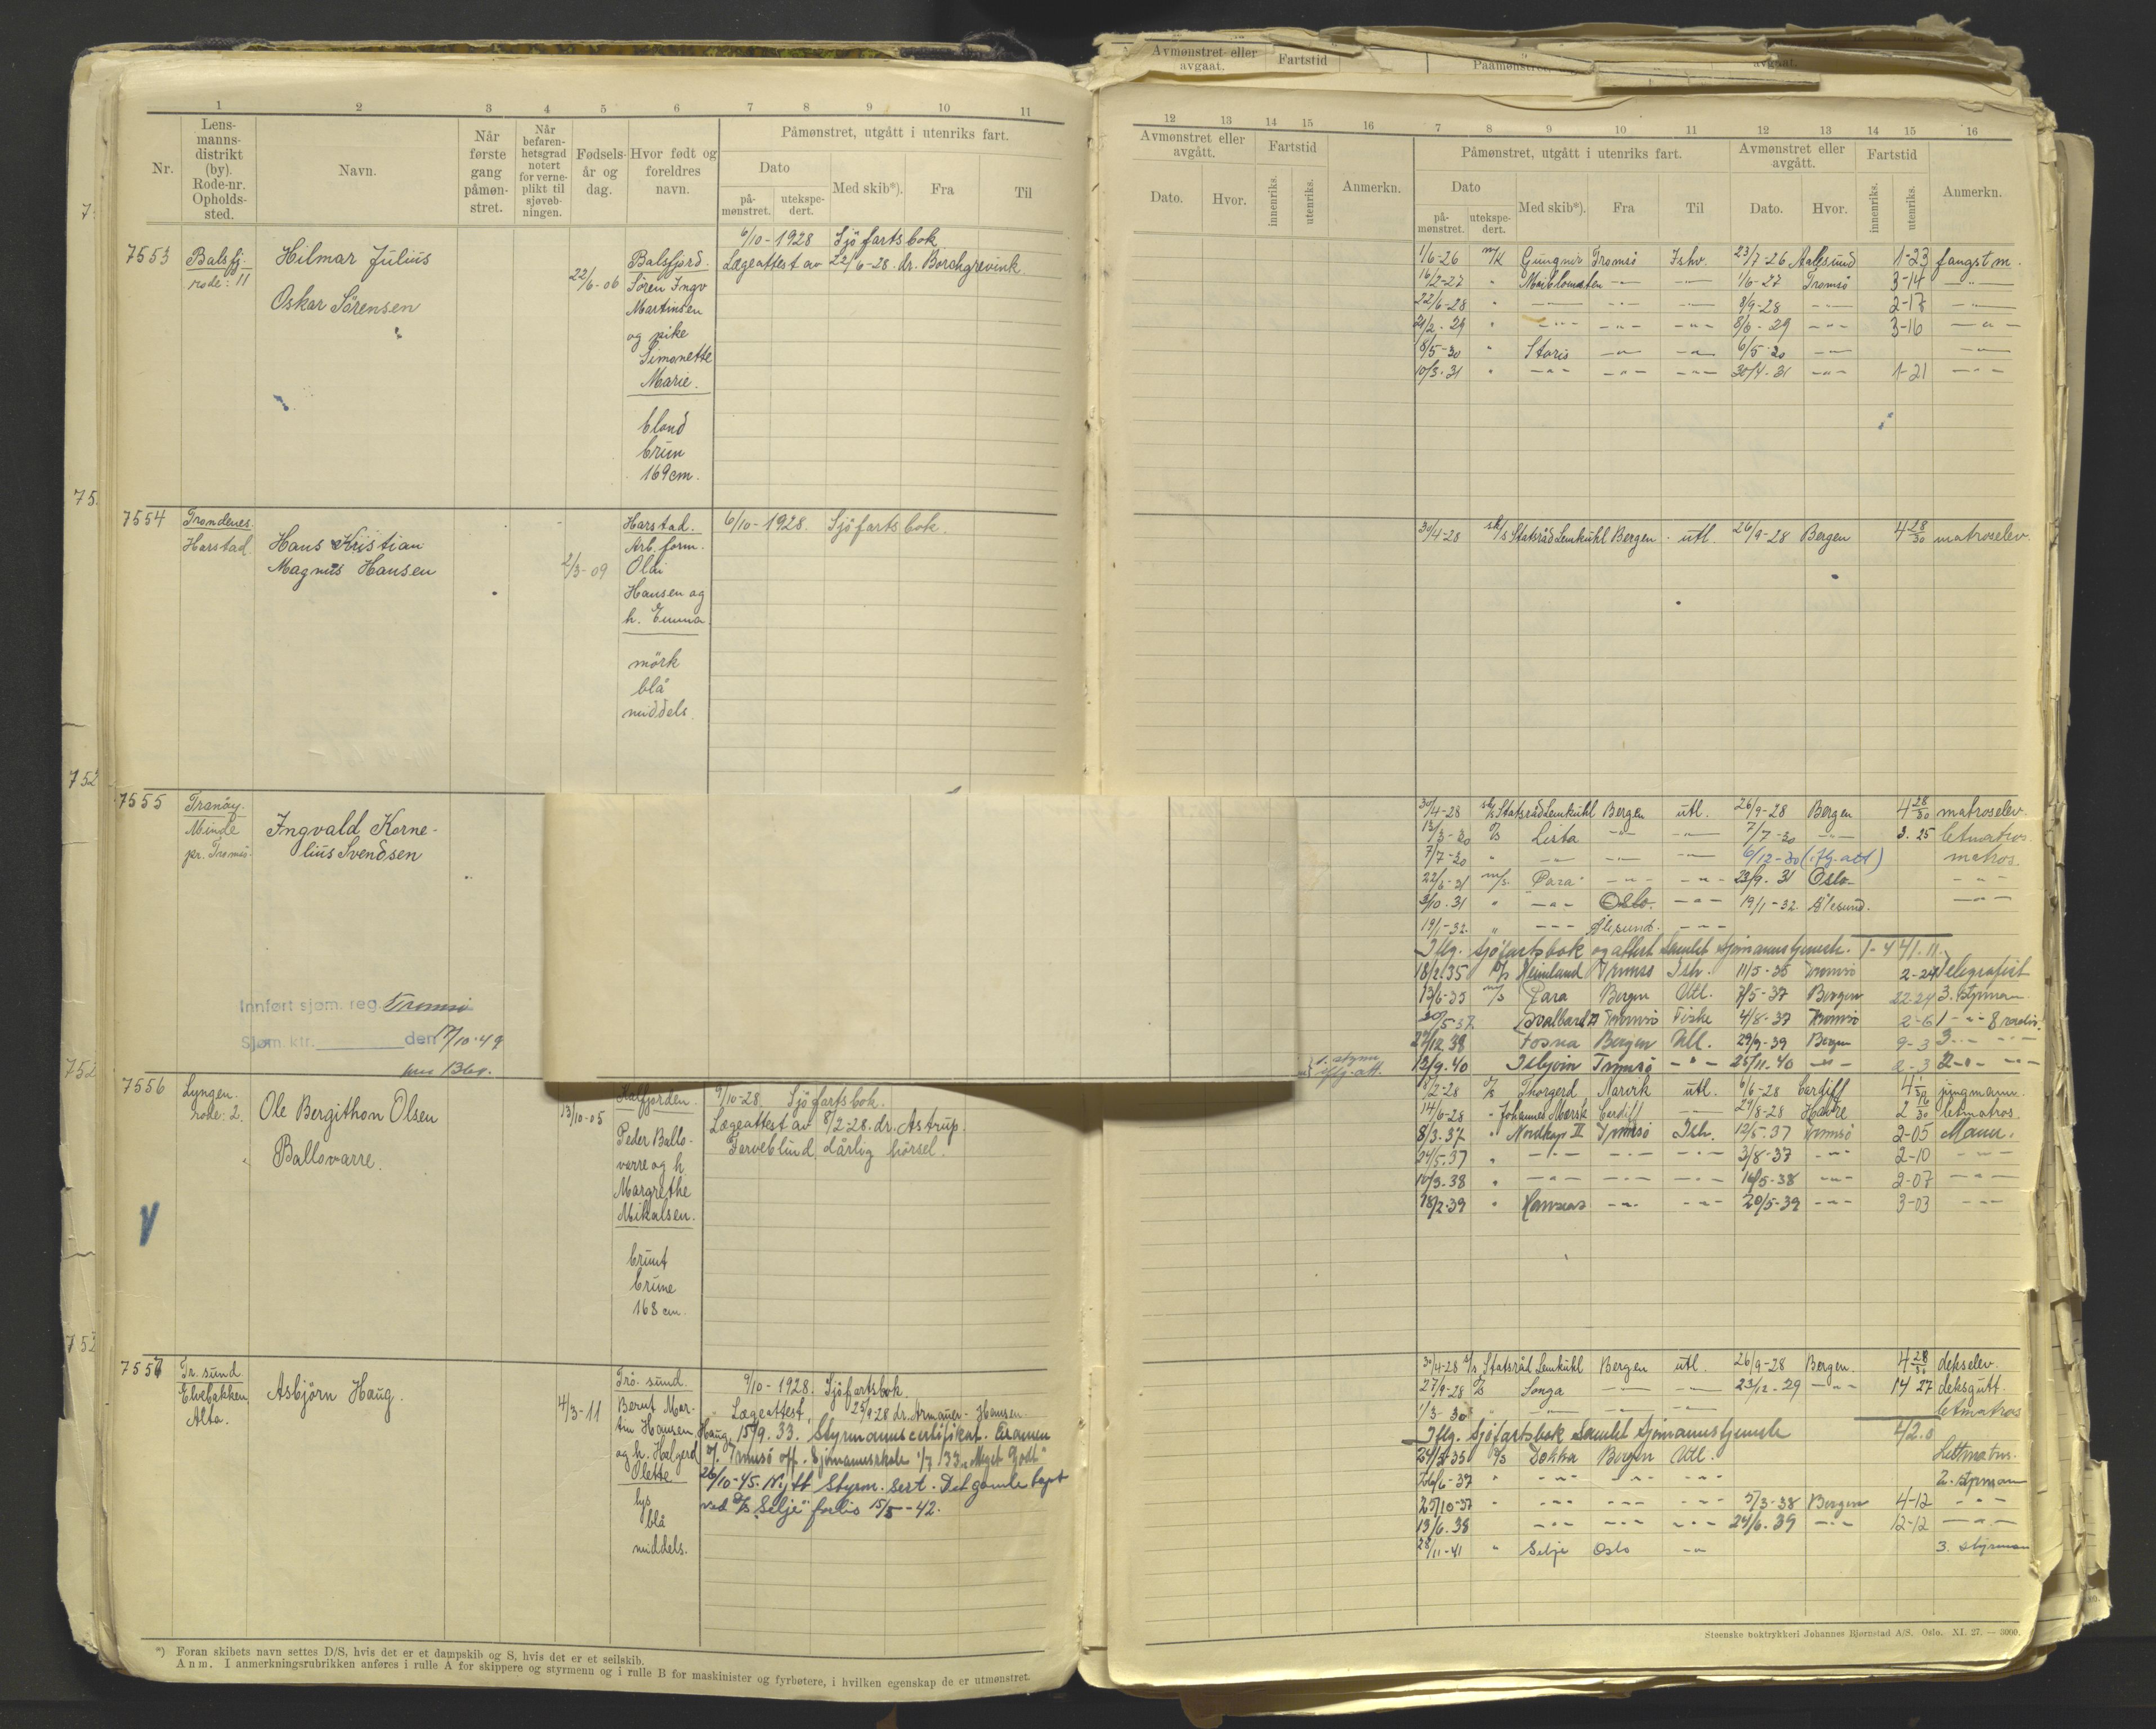 1 2 3 4 5 6 7 8 9 10 11
Nr.
Lens-
manns-
distrikt
(by).
Rode-nr.
Opholds-
sted.
Navn.
Når
første
gang
påmøn-
stret.
Når
befaren-
hetsgrad
notert
for verne-
plikt til
sjøveb-
ningen.
Fødsels-
år og
dag.
Hvor født og
foreldres
navn.
Påmønstret, utgått i utenriks fart.
Dato
på-
mønstret.
utekspe-
dert.
Med skib*).
Fra
Til
7553
Balsfj.
rode: 11
Hilmar Julius
Oskar Sørensen
22/6-06
Balsfjord.
Søren Ingv
Martinsen
og pike
Simonette
Marie.
blond
brun
169 cm.
6/10-1928 Sjöfartsbok
Lægeattest av 22/6-28. dr. Borchgrevink.
7554
Trondenes.
Harstad.
Hans Kristian
Magnus Hansen
2/3-09
Harstad.
Arb. form.
Olai
Hansen og
h. Emma
mörk
blå
middels.
6/10-1928. Sjöfartsbok.
7555
Tranöy.
Minde
pr. Tromsö.
Ingvald Korne-
lius Svendsen
Innført sjøm. reg. Tromsö
Sjøm. ktr. den 17/10-49
7556
Lyngen.
rode: 2.
Ole Bergithon Olsen
Ballovarre.
13/10-05
Kalfjorden.
Peder Ballo-
varre og h
Margrethe
Mikalsen.
brunt
brune
168 cm.
9/10-28. Sjöfartsbok.
Lægeattest av 8/2-28. dr. Astrup.
Farveblind, dårlig hörsel.
7557
Tr. sund
Elvebakken,
Alta.
Asbjörn Haug.
4/3-11
Trö. sund.
Bernt Mar-
tin Hansen
og h. Helgerd
Olette
lys
blå
middels.
9/10-1928. Sjöfartsbok.
Lægeattest, 25/9 28 dr. Armauer-Hansen.
Haug, 15/9. 33. Styrmannscertifikat. Examen
v/. Tromsö off. Sjömannsskole 1/7 133 "Meget Godt"
26/10-45. Nytt Styrm. sert. Det gamle tapt
ved D/s "Selje" forlis 15/5-42.
*) Foran skibets navn settes D/S, hvis det er et dampskib og S, hvis det er et seilskib.
Anm. I anmerkningsrubrikken anføres i rulle A for skippere og styrmenn og i rulle B for maskinister og fyrbøtere, i hvilken egenskap de er utmønstret.
Avmønstret eller
avgaat.
Fartstid
12 13 14 15 16 7 8 9 10 11 12 13 14 15 16
Avmønstret eller
avgått.
Fartstid
Dato.
Hvor.
innenriks.
utenriks.
Anmerkn.
Påmønstret, utgått i utenriks fart.
Dato
på-
mønstret.
utekspe-
dert.
Med skib*).
Fra
Til
Avmønstret eller
avgått.
Dato.
Hvor.
Fartstid
innenriks.
utenriks.
Anmerkn.
1/6-26 m/k Gungner Tromsö Ishv. 23/7-26 Aalesund 1-23 fangstm.
16/2-27 " Maiblomsten -"- -"- 1/6-27 Tromsö 3-14 -"-
22/6-28 " -"- -"- -"- 8/9-28 -"- 2-17 -"-
21/2-29 " -"- -"- -"- 8/6-29 -"- 3-16 -"-
8/5-30 " Storis -"- -"- 6/5-30 -"- -"-
10/3-31 " -"- -"- -"- 30/4-31 -"- 1-21 -"-
30/4-28 sk/s Statsråd Lemkuhl Bergen. utl. 26/9-28 Bergen 4 28/30 matroselev.
30/4-28 sk/s Statsråd Lemkuhl Bergen utl. 26/9-28 Bergen 4 28/30 matroselev
13/3-30 D/s Lista -"- -"- 7/7-30 -"- 3. 25 letmatros.
7/7-30 " -"- -"- -"- 6/12-30 (iflg. att) matros.
22/6-31 m/s. "Para" -"- -"- 23/9-31 Oslo -"-
3/10.31 " -"- Oslo. -"- 19/1-32. Ålesund. -"-
19/1-32. " -"- Ålesund. -"-
Iflg. Sjöfartsbok og attest Samlet Sjömannstjeneste. 41. 11.
18/2.35 Heimland Tromsö Ish. 11/5-35 Tromsö 2-24 Telegrafist
13/6-35 m/s Para Bergen Utl. 7/5-37 Bergen 22-24 3. Styrmann
20/5-37. Svalbard II Tromsö Fiske 4/8-37 Tromsö 2-6
27/12 38 Fosna Bergen Utl. 29/9-39 Bergen 9-3 3. -"-
1. styrm.
iflg. att.
12/9.40 Isbjörn Tromsö -"- 25/11.40 -"- 2-3
18/2-28 D/s Thorgerd Narvik utl. 6/6-28 Cardiff 4 1/30 jungmann.
14/6-28 " Johannes Mærsk Cardiff -"- 29/8-28 Havre 2 16/30 letmatros.
8/3.37 " Nordkap II Tromsö Ish. 12/5-37 Tromsö 2-05 Mann.
24/5.37 " -"- -"- -"- 3/8-37 -"- 2-10 -"-
10/3.38 " -"- -"- -"- 16/5-38 -"- 2-07 -"-
18/2.39 " -"- -"- 20/5-39 -"- 3-03 -"-
30/4-28 s/s Statsråd Lemkuhl Bergen utl. 26/9-28 Bergen. 4 28/30 dekselev.
27/9-28 D/s Songa -"- -"- 23/12-29 -"- 14 27 deksgutt.
1/3-30 " -"- -"- -"- letmatros
Iflg. Sjöfartsbok Samlet Sjömannstjeneste 42.0
24/3-35 D/s Dokka Bergen Utl. Lettmatros.
26/6-37 " -"- -"- -"- 2. styrmann
25/10-37 " -"- -"- -"- 5/3-38 Bergen 4-12 -"-
13/6.38 " -"- -"- -"- 24/6.39 -"- 12-12 -"-
28/11-41 " Selje Oslo -"- 3. styrmann
Steenske boktrykkeri Johannes Bjørnstad A/S. Oslo. XI. 27. — 3000.